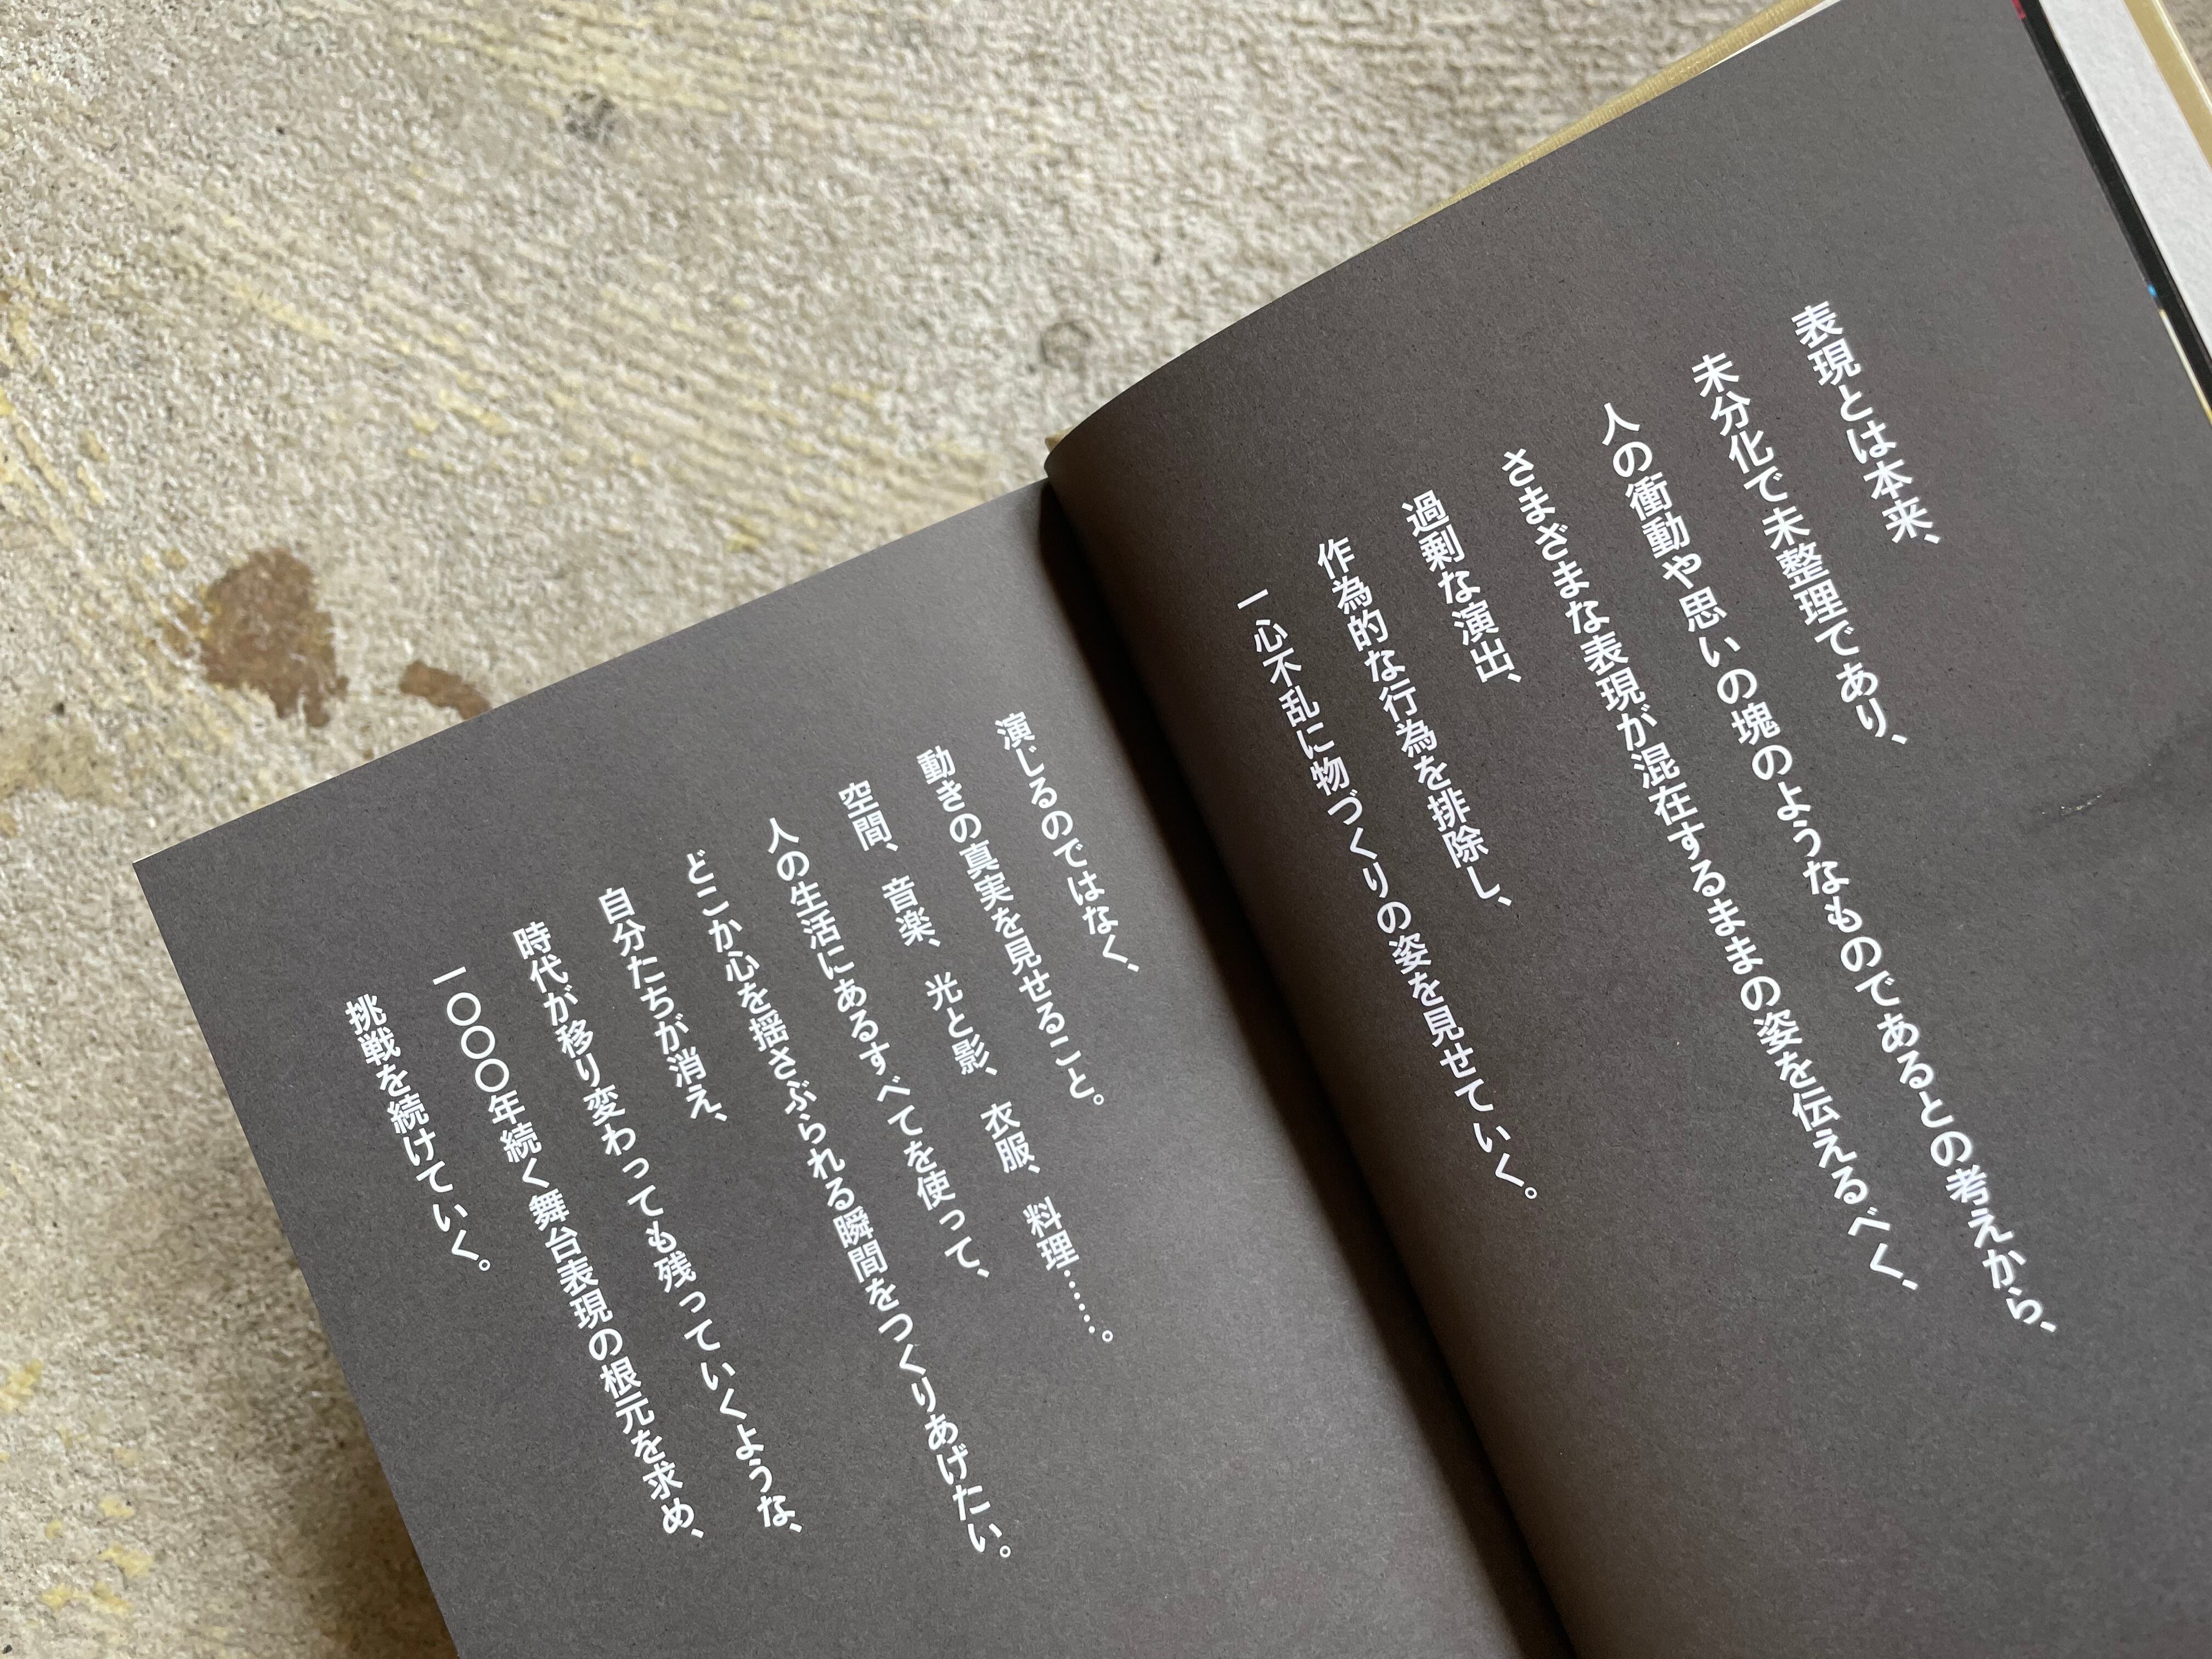 表現とは本来、
未分化で未整理であり、
人の衝動や思いの塊のようなものであるとの考えから、
さまざまな表現が混在するままの姿を伝えるべく、
過剰な演出、
作為的な行為を排除し、
一心不乱に物づくりの姿を見せていく。
演じるのではなく、
動きの真実を見せること。
空間、音楽、光と影、衣服、料理……。
人の生活にあるすべてを使って、
どこか心を揺さぶられる瞬間をつくりあげたい。
自分たちが消え、
時代が移り変わっても残っていくような、
一〇〇〇年続く舞台表現の根元を求め、
挑戦を続けていく。